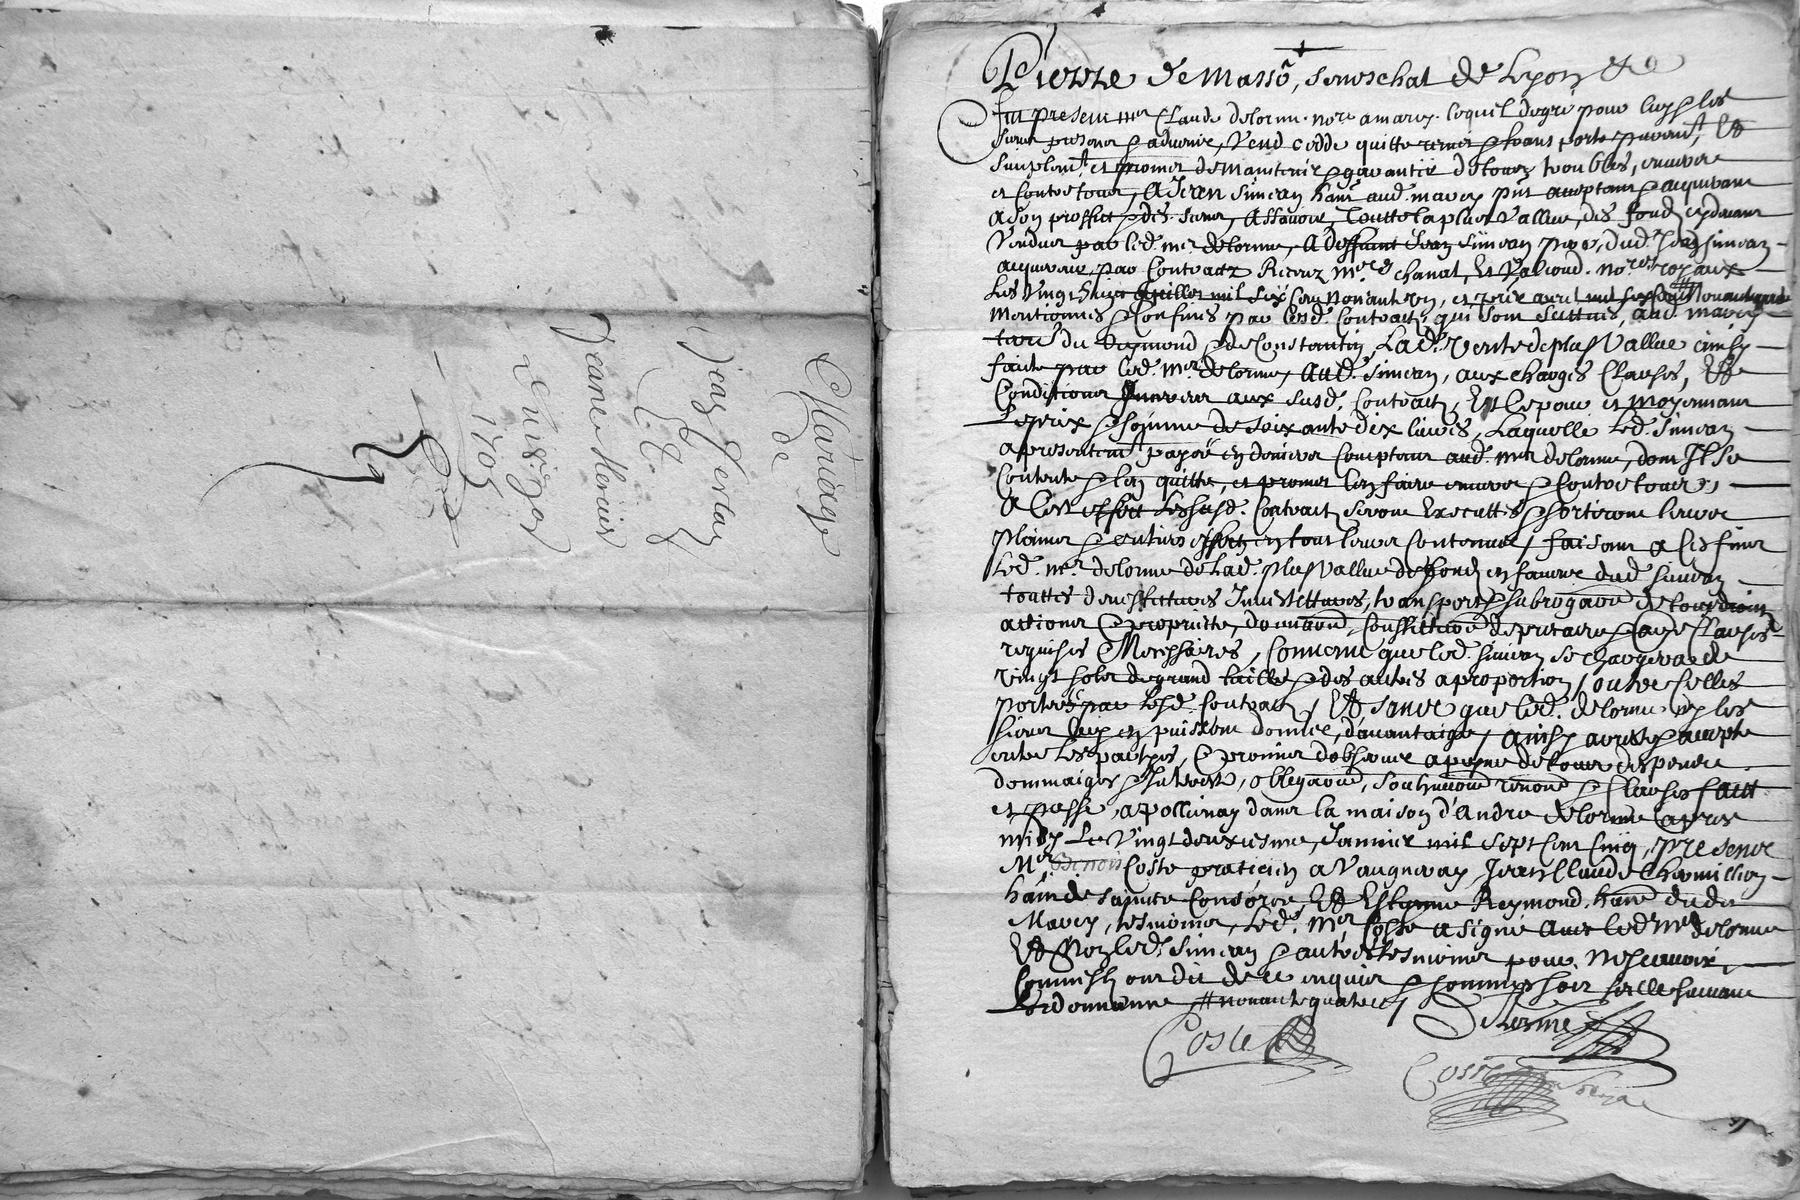 Mariage
de
Jean Ferlay
Et
Jeanne Mercier
Lusigny
1705
Pierre de Masso, seneschal de Lyon &c
fut present Mer Claude delorme nore a marcy lequel de gré pour luy & les
siens presens & advenir, Vend cedde quitte remet & transporte purement, Et
simplemt et promet de maintenir & garantir de tous troubles, envers
et contre tous, A Jean Simean hant aud. marcy pnt acceptant & acquerant
a son proffict & des siens, Assavoir, Toutte la plus Vallue, des fondz cy devant
Vendus par led. mer delorme, A deffunt Jean Simean pere, dud. Jean Simean
acquereur, par Contractz Receuz mes chanal, Et nores royaux
Les Vingt huict Juillet mil six cent Nonante un, et avril mil six cent #
mentionnés & Confinés par lesd. Contractz, qui sont scittués, aud. marcy
du Reymond & de Constantin, Lad. Vente de plus Vallue ainsy
faite par led. mer delorme, aud. Simean, aux charges Clauses, Et
Conditions aux susd. Contractz, Et le pour et moyennant
Le prix & somme de soixante dix livres, Laquelle led. Simean
a presentemt payée en deniers Comptant aud. mer delorme, dont Il se
Contente & l'en quitte, et promet l'en faire envers & Contre tous,
A Cest effect Les susd. Contractz seront Executtés & sortiront leurs
plains & entiers effectz en tout leurs Contenus, faisant a ces fins
Led. mer delorme de Lad. plus Vallue de fondz en faveur dud. Simean
touttes devestitures Investitures, transport & subrogaon de tous droictz
actions & propriette, Constitution de precaire & autres Clauses
requises & Necessaires, Convenu que led. Simean se chargera de
vingt solz de grand taille & des autres a proportion, outre Celles
portées par lesd. Contractz, Et sans que led. delorme ny les
siens luy en puissent donner, d'avantaige, ainsy arresté & accepté
entre Les parties, & promis d'observer a peyne de tous despens
dommaiges & Interestz, obligaon, soubmission renon & Clauses faict
et passé, a pollionay dans la maison d'Andre delorme apres
midy Le Vingt deuxiesme, Janvier mil sept cent cinq, presence
Mer Benoit Coste praticien a Vaugneray, Jean Claude
hant de saincte Consorce, Et Estienne Reymond, hant dud.
Marcy, tesmoins, Led. Mer Coste a signé avec led. Mer delorme
Et Non led. Simean & autres tesmoins pour, ne scavoir,
Comm'ilz ont dit de ce enquis & sommés
L'ordonnance # nonante quatre
Delorme
Coste
Coste